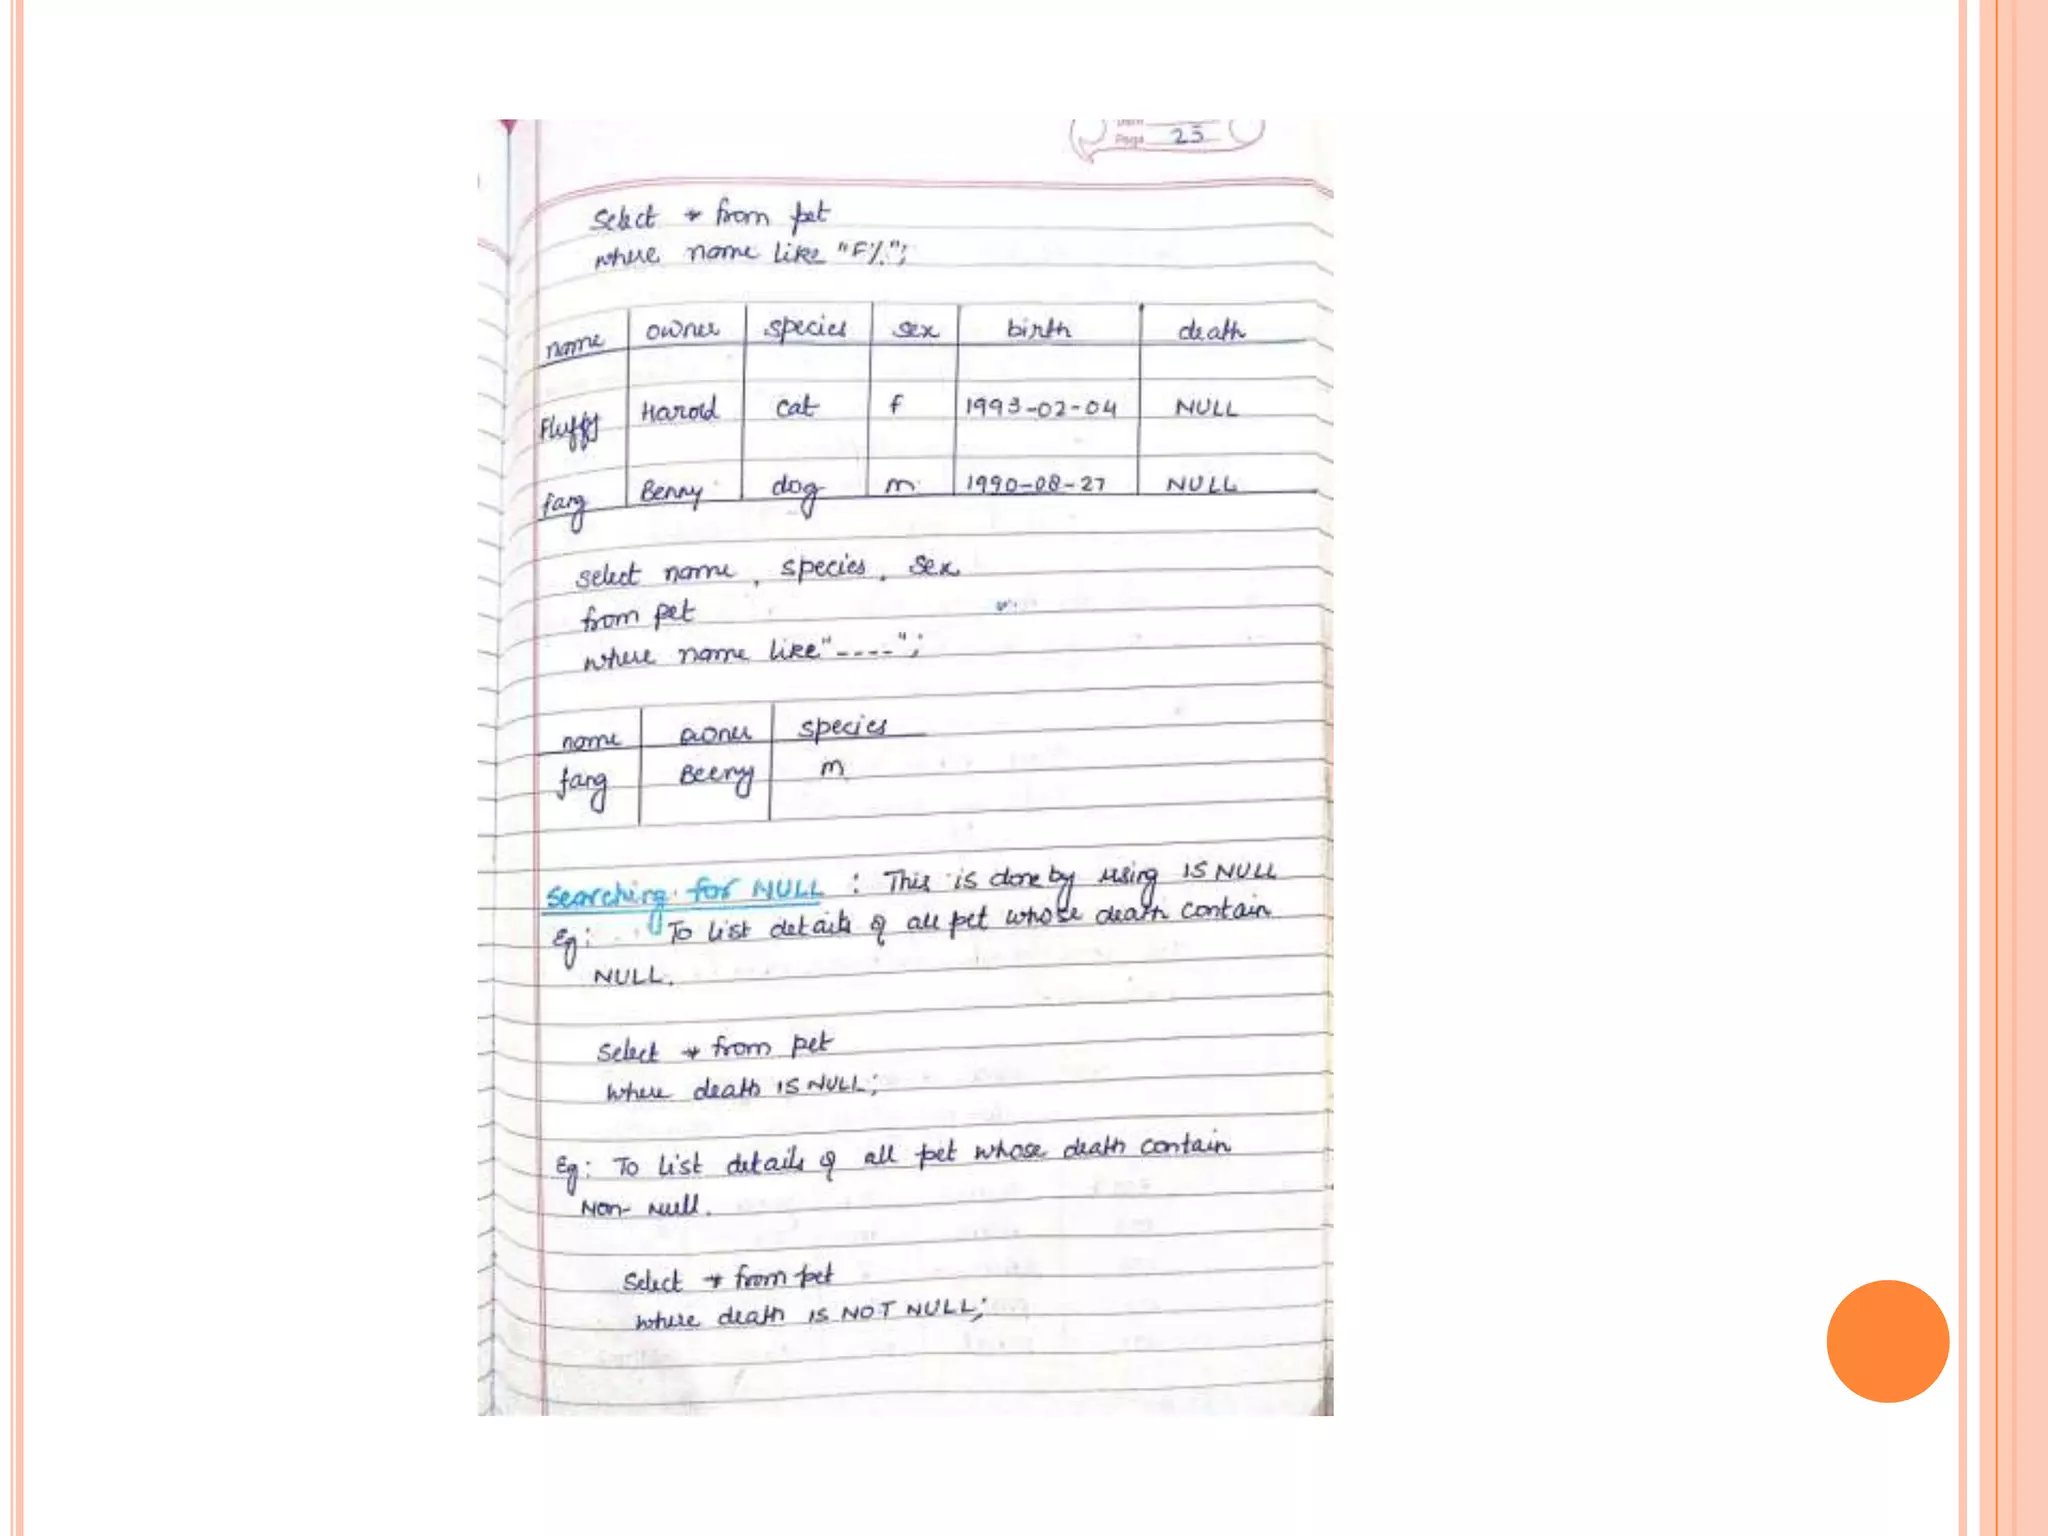 Page 25
Select * from pet
where name like "F%";
name owner species sex birth death
Fluffy Harold cat f 1993-02-04 NULL
fang Benny dog m 1990-08-27 NULL
select name, species, sex
from pet
where name like "----";
name owner species
fang Beeny m
Searching for NULL : This is done by using IS NULL
Eg: To list details of all pet whose death contain
NULL.
Select * from pet
where death IS NULL;
Eg: To list details of all pet whose death contain
Non- Null.
Select * from pet
where death IS NOT NULL;